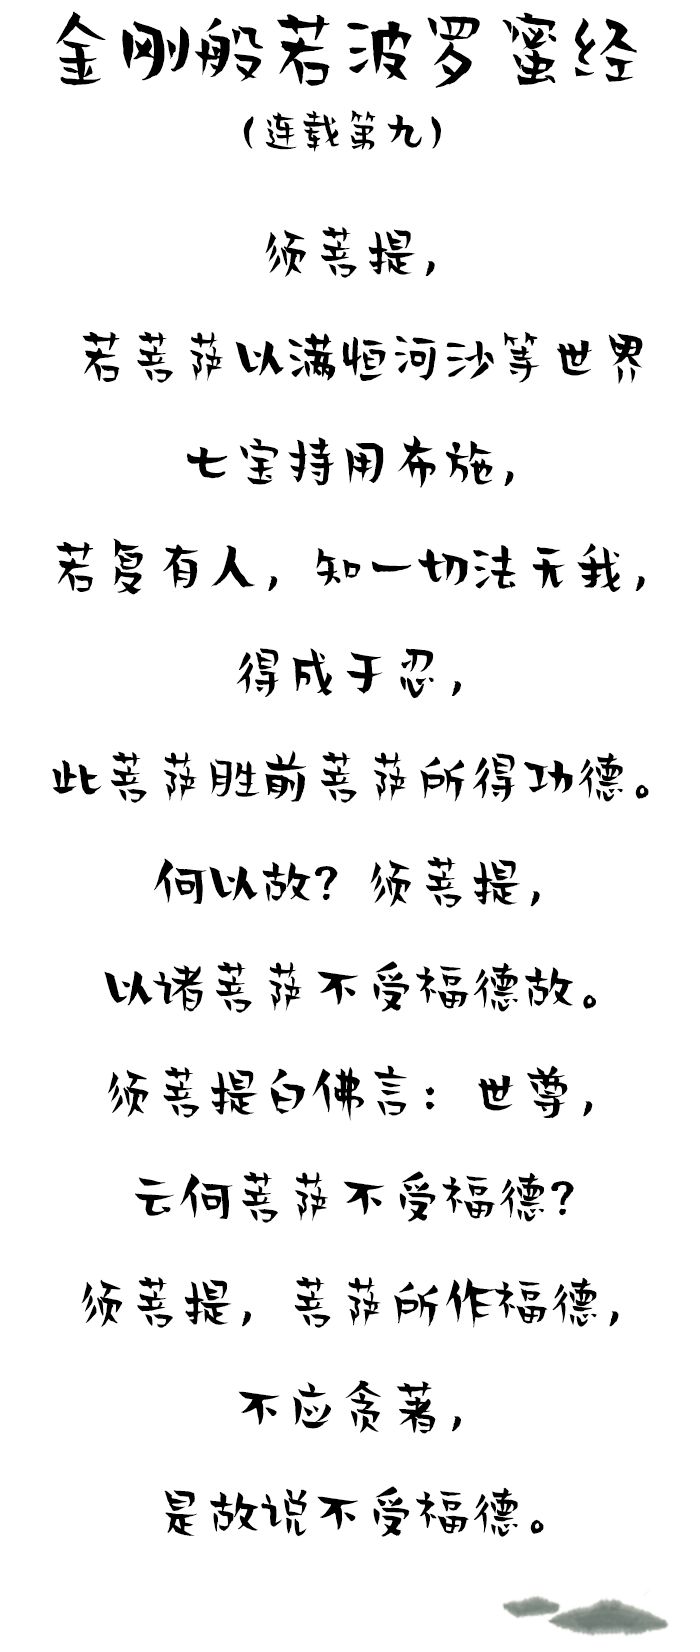 金刚般若波罗蜜经
（连载第九）
须菩提，
若菩萨以满恒河沙等世界
七宝持用布施，
若复有人，知一切法无我，
得成于忍，
此菩萨胜前菩萨所得功德。
何以故？须菩提，
以诸菩萨不受福德故。
须菩提白佛言：世尊，
云何菩萨不受福德？
须菩提，菩萨所作福德，
不应贪著，
是故说不受福德。